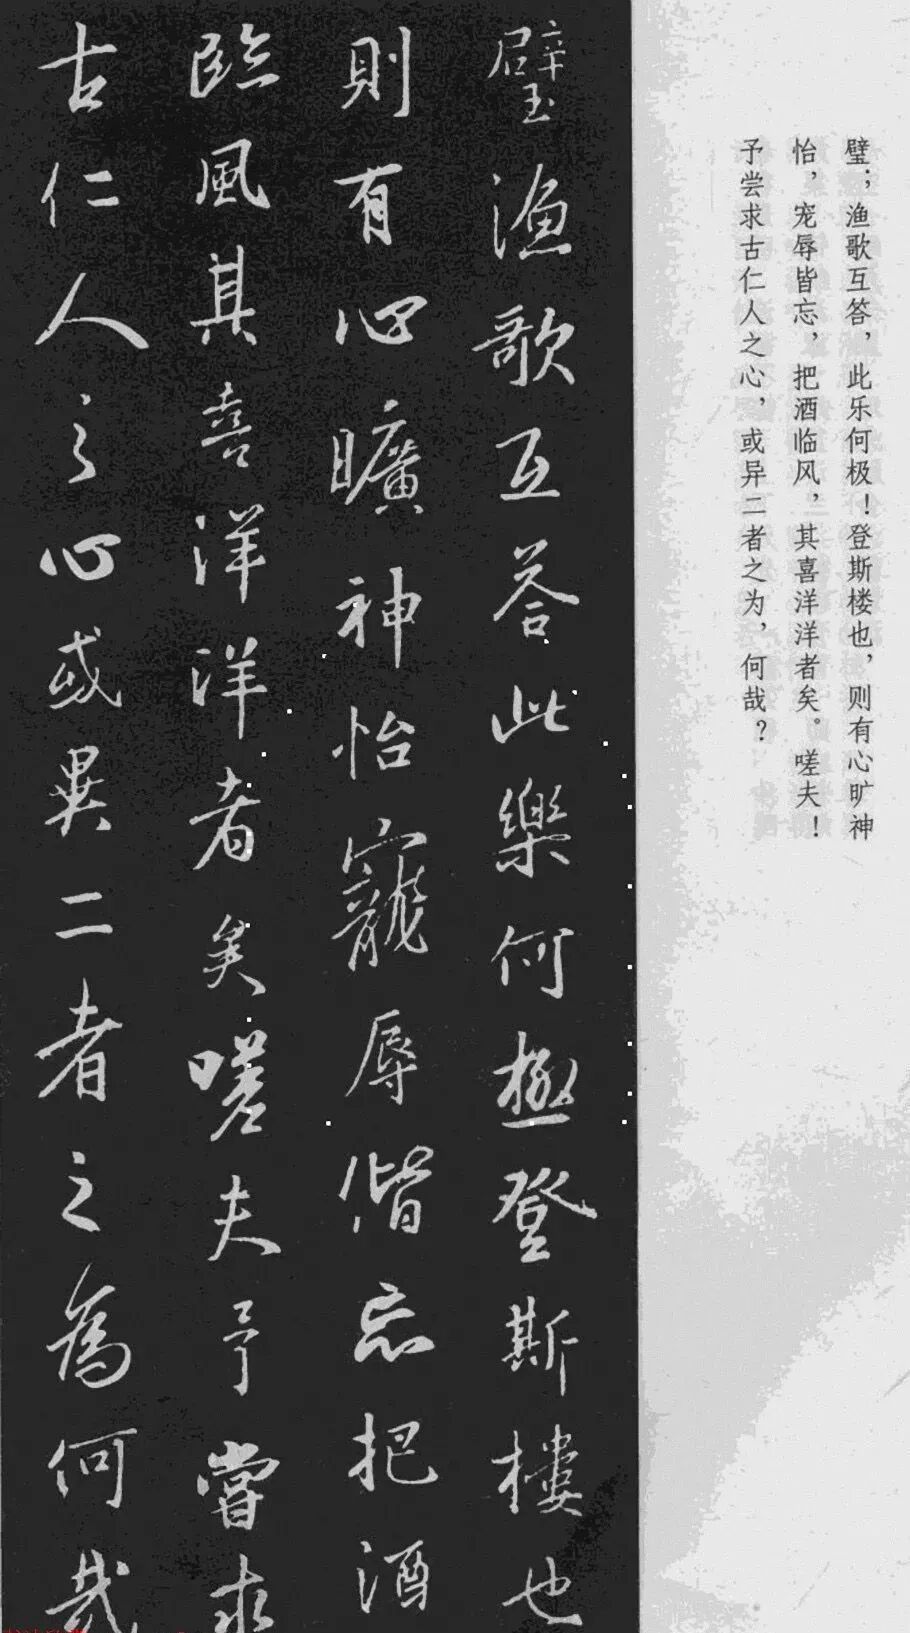 璧；渔歌互答，此乐何极！登斯楼也，则有心旷神
怡，宠辱皆忘，把酒临风，其喜洋洋者矣。嗟夫！
予尝求古仁人之心，或异二者之为，何哉？
璧漁歌互荅此樂何極登斯樓也
則有心曠神怡寵辱偕忘把酒
臨風其喜洋洋者矣嗟夫予嘗求
古仁人之心或異二者之為何哉